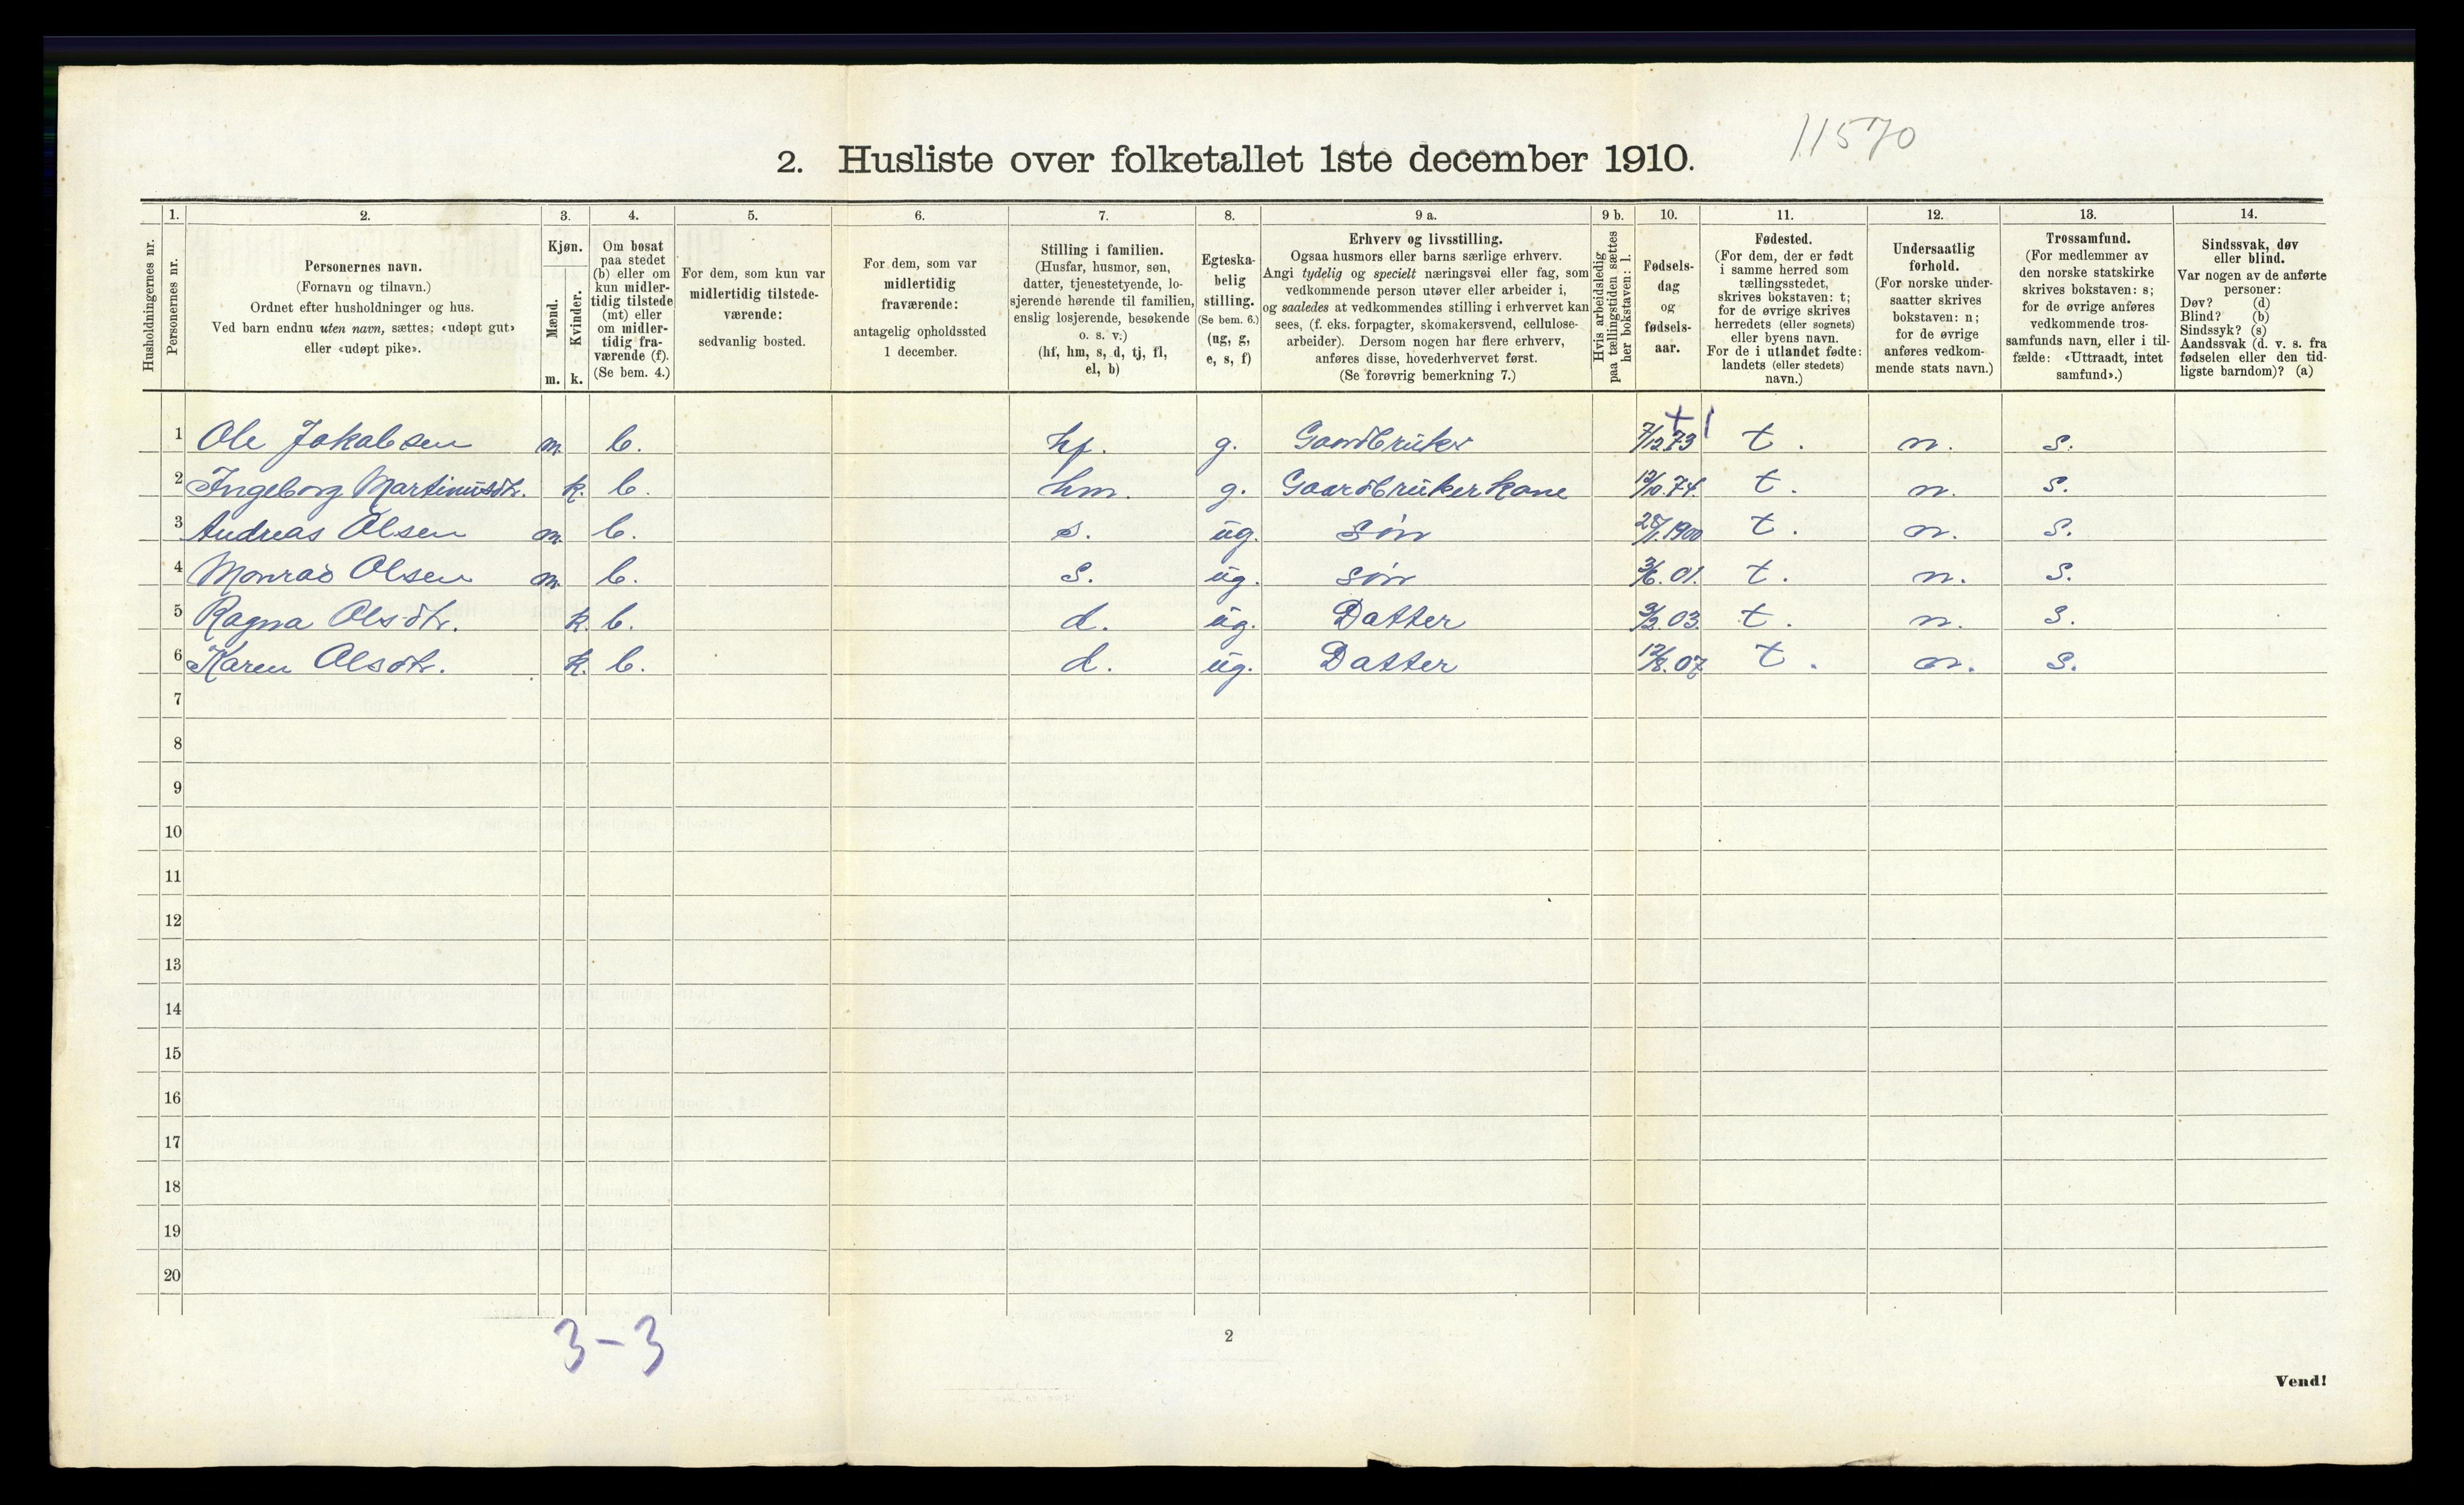 11570
2. Husliste over folketallet 1ste december 1910.
Husholdningernes nr.
1.
Personernes nr.
2.
Personernes navn.
(Fornavn og tilnavn.)
Ordnet efter husholdninger og hus.
Ved barn endnu uten navn, sættes: «udøpt gut»
eller «udøpt pike».
3.
Kjøn.
Mænd.
Kvinder.
m. k.
4.
Om bosat
paa stedet
(b) eller om
kun midler-
tidig tilstede
(mt) eller
om midler-
tidig fra-
værende (f).
(Se bem. 4.)
5.
For dem, som kun var
midlertidig tilstede-
værende:
sedvanlig bosted.
6.
For dem, som var
midlertidig
fraværende:
antagelig opholdssted
1 december.
7.
Stilling i familien.
(Husfar, husmor, søn,
datter, tjenestetyende, lo-
sjerende hørende til familien,
enslig losjerende, besøkende
o. s. v.)
(hf, hm, s, d, tj, fl,
el, b)
8.
Egteska-
belig
stilling.
(Se bem. 6.)
(ug, g,
e, s, f)
9 a.
Erhverv og livsstilling.
Ogsaa husmors eller barns særlige erhverv.
Angi tydelig og specielt næringsvei eller fag, som
vedkommende person utøver eller arbeider i,
og saaledes at vedkommendes stilling i erhvervet kan
sees, (f. eks. forpagter, skomakersvend, cellulose-
arbeider). Dersom nogen har flere erhverv,
anføres disse, hovederhvervet først.
(Se forøvrig bemerkning 7.)
9 b.
Hvis arbeidsledig
paa tællingstiden sættes
her bokstaven: l.
10.
Fødsels-
dag
og
fødsels-
aar.
11.
Fødested.
(For dem, der er født
i samme herred som
tællingsstedet,
skrives bokstaven: t;
for de øvrige skrives
herredets (eller sognets)
eller byens navn.
For de i utlandet fødte:
landets (eller stedets)
navn.)
12.
Undersaatlig
forhold.
(For norske under-
saatter skrives
bokstaven: n;
for de øvrige
anføres vedkom-
mende stats navn.)
13.
Trossamfund.
(For medlemmer av
den norske statskirke
skrives bokstaven: s;
for de øvrige anføres
vedkommende tros-
samfunds navn, eller i til-
fælde: «Uttraadt, intet
samfund».)
14.
Sindssvak, døv
eller blind.
Var nogen av de anførte
personer:
Døv? (d)
Blind? (b)
Sindssyk? (s)
Aandssvak (d. v. s. fra
fødselen eller den tid-
ligste barndom)? (a)
1 Ole Jakobsen m. b. hf. g. Gaardbruker 7/12 73 t. n. s.
2 Ingeborg Martinusdtr. k. b. hm. g. Gaardbrukerkone 12/10.74. t. n. s.
3 Andreas Olsen m. b. s. ug. søn 1900 t. n. s.
4 Monrad Olsen m. b. s. ug. søn 3/6. 01. t. n. s.
5 Ragna Olsdtr. k. b. d. ug. Datter 3/2. 03. t. n. s.
6 Karen Olsdtr. k. b. d. ug. Datter 12/8. 07 t. n. s.
7
8
9
10
11
12
13
14
15
16
17
18
19
20
3-3
2
Vend!